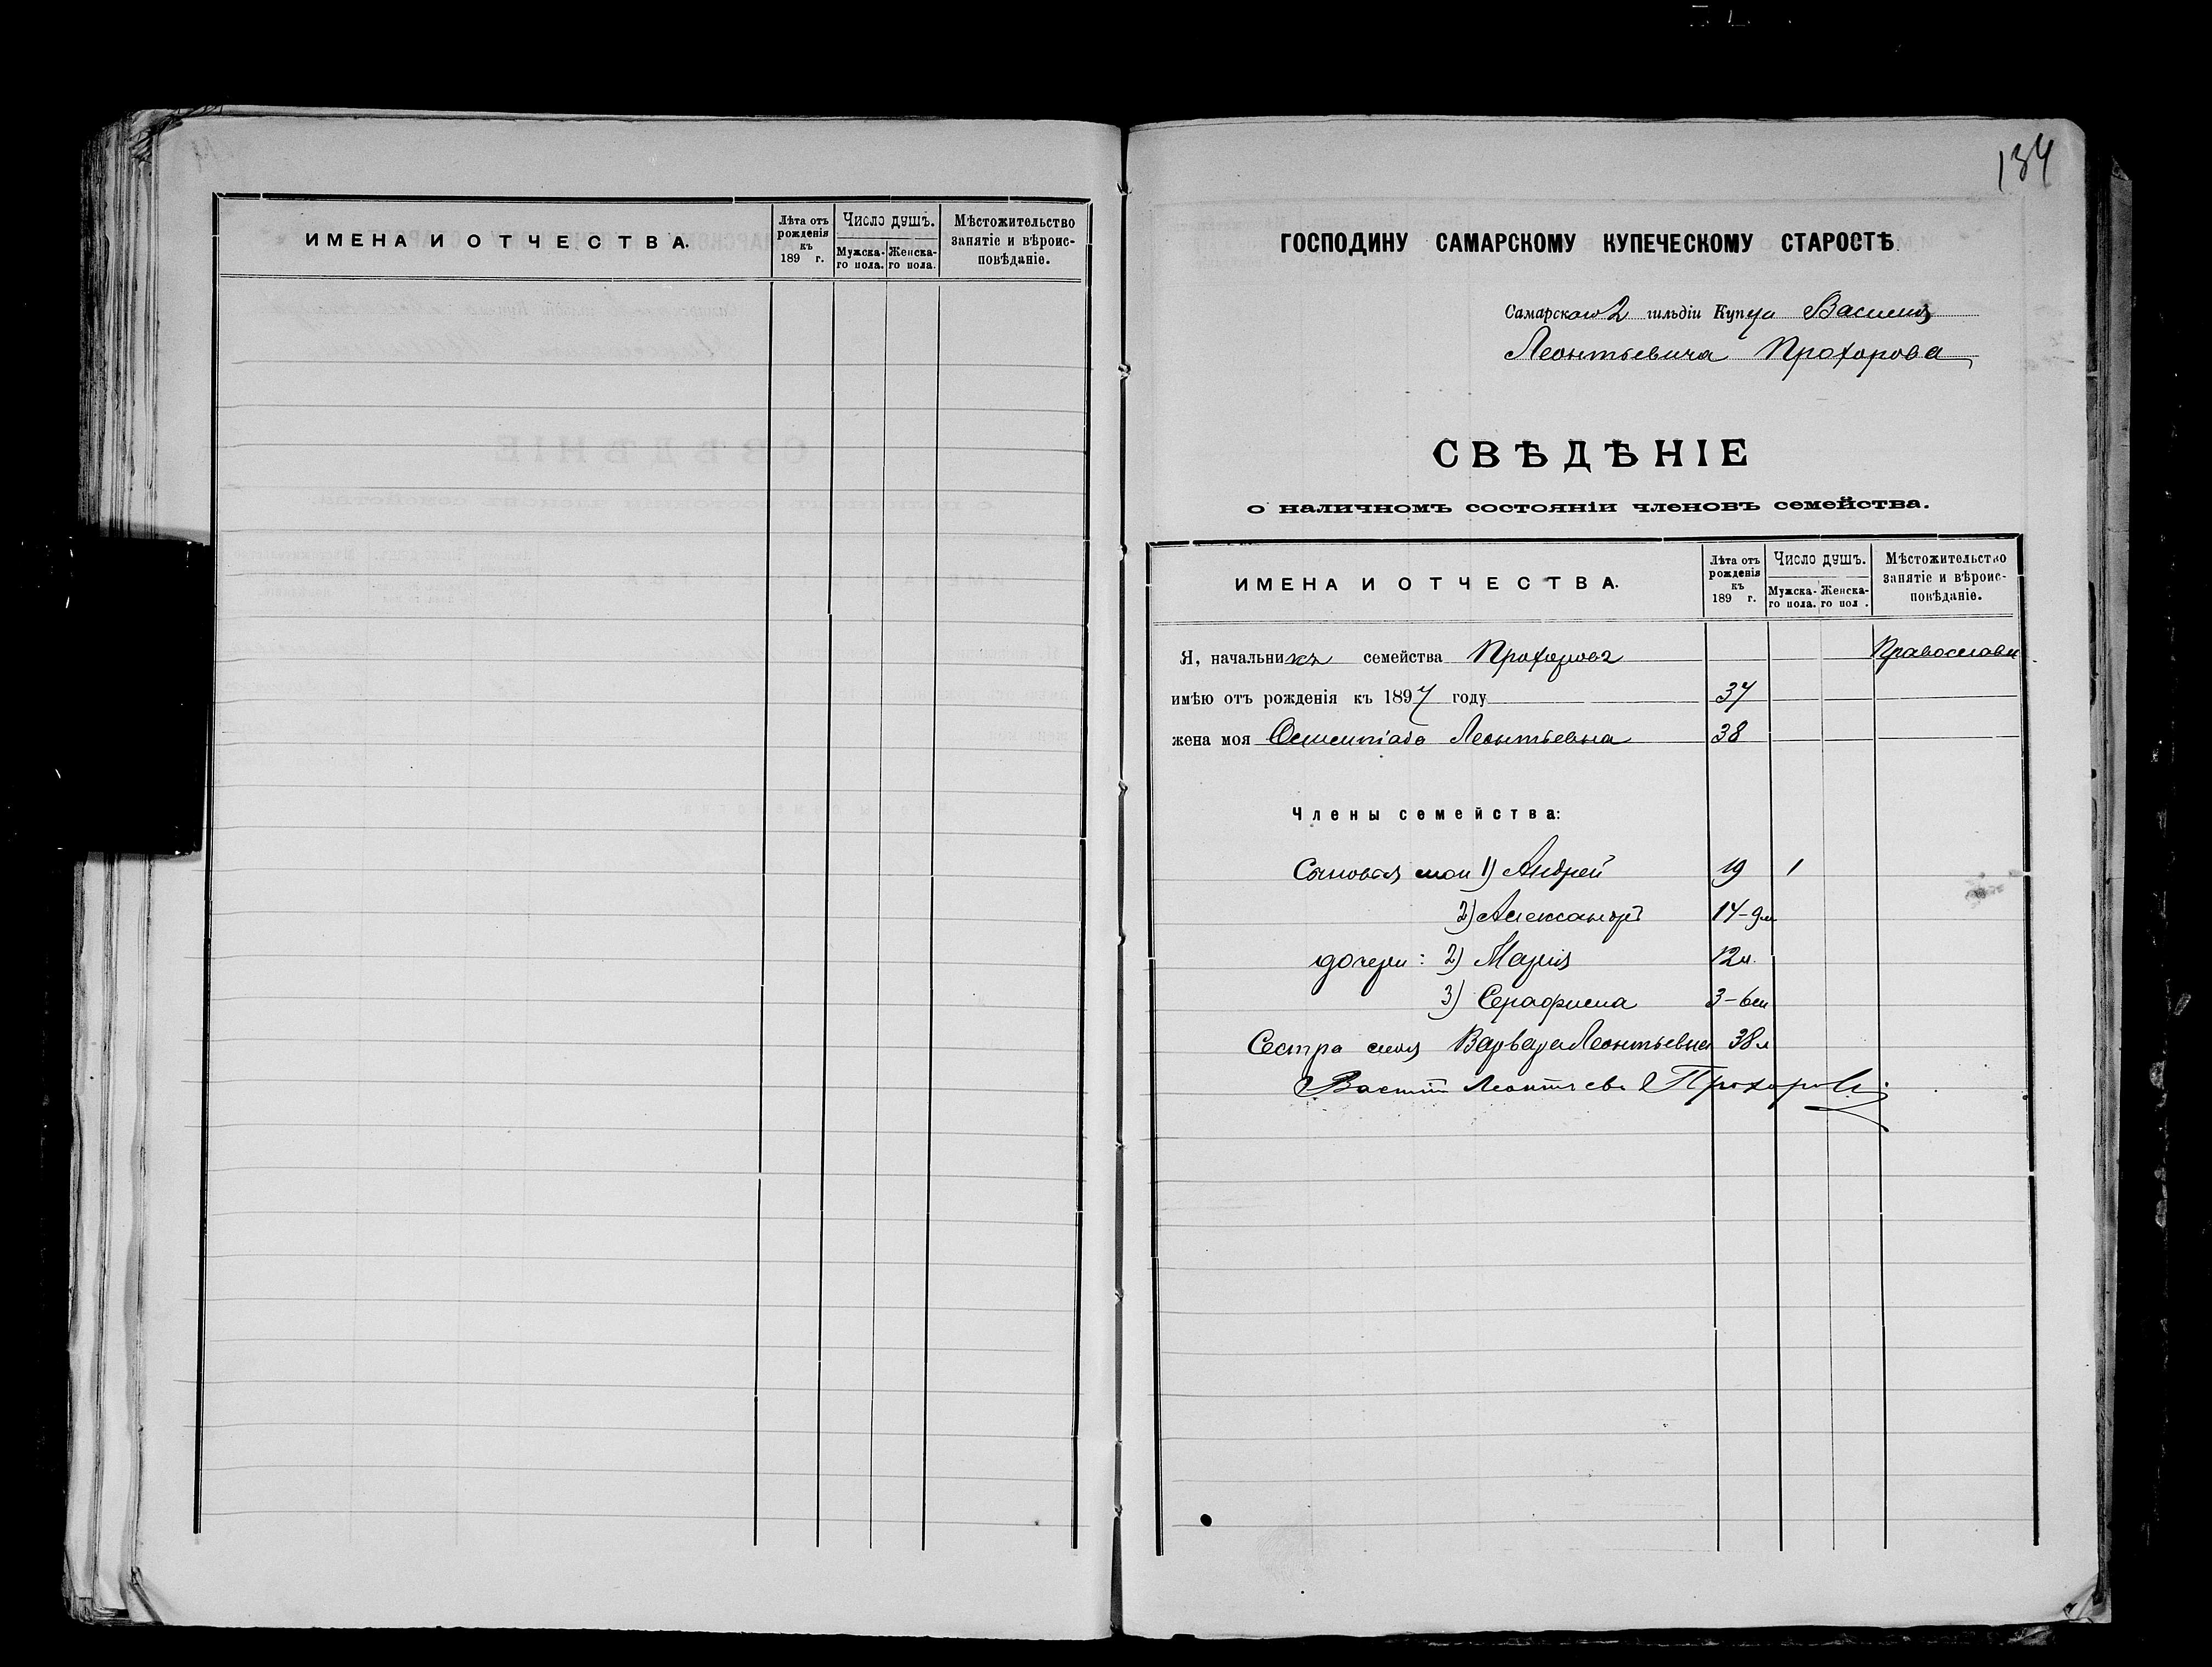 ИМЕНА И ОТЧЕСТВА.
Лѣта отъ рожденія къ 189 г.
Число душъ.
Мужска-го пола.
Женска-го пола.
Мѣстожительство занятіе и вѣроис-повѣданіе.
134
ГОСПОДИНУ САМАРСКОМУ КУПЕЧЕСКОМУ СТАРОСТѢ.
Самарскаго 2 гильдіи Купца Василія
Леонтьевича Прохорова
СВѢДѢНІЕ
о наличномъ состояніи членовъ семейства.
ИМЕНА И ОТЧЕСТВА.
Лѣта отъ рожденія къ 189 г.
Число душъ.
Мужска-го пола.
Женска-го пол .
Мѣстожительство занятіе и вѣроис-повѣданіе.
Я, начальникъ семейства Прохоровъ
имѣю отъ рожденія къ 1897 году 37
жена моя Леонтьевна 38
Члены семейства:
Сыновья мои 1) Андрей 19 1
2) Александръ 14-9м
дочери: 2) Марія 12л.
3) Серафима 3-6м
Сестра моя Варвара Леонтьевна 38л
Василій Леонтьевъ Прохоровъ